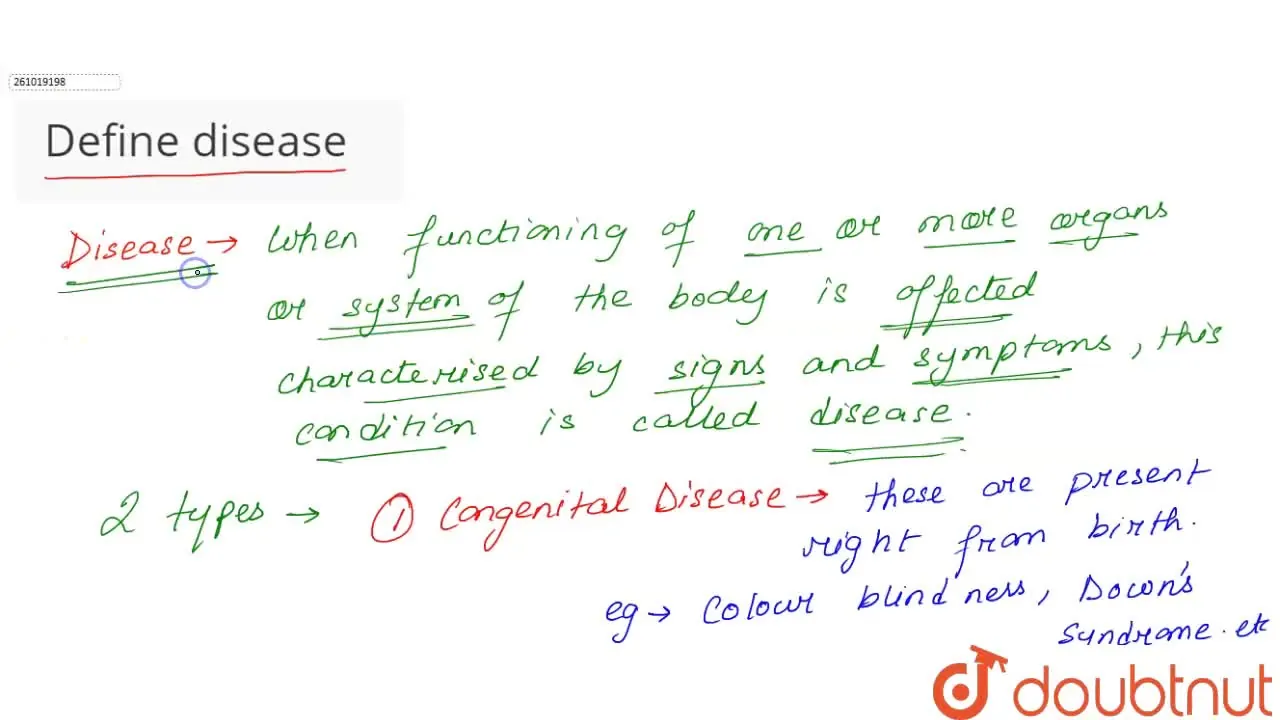 261019198
Define disease
Disease → When functioning of one or more organs
or system of the body is affected
characterised by signs and symptoms, this
condition is called disease.
2 types → ① Congenital Disease → these are present
right from birth.
eg → Colour blindness, Down's
Syndrome. etc
doubtnut